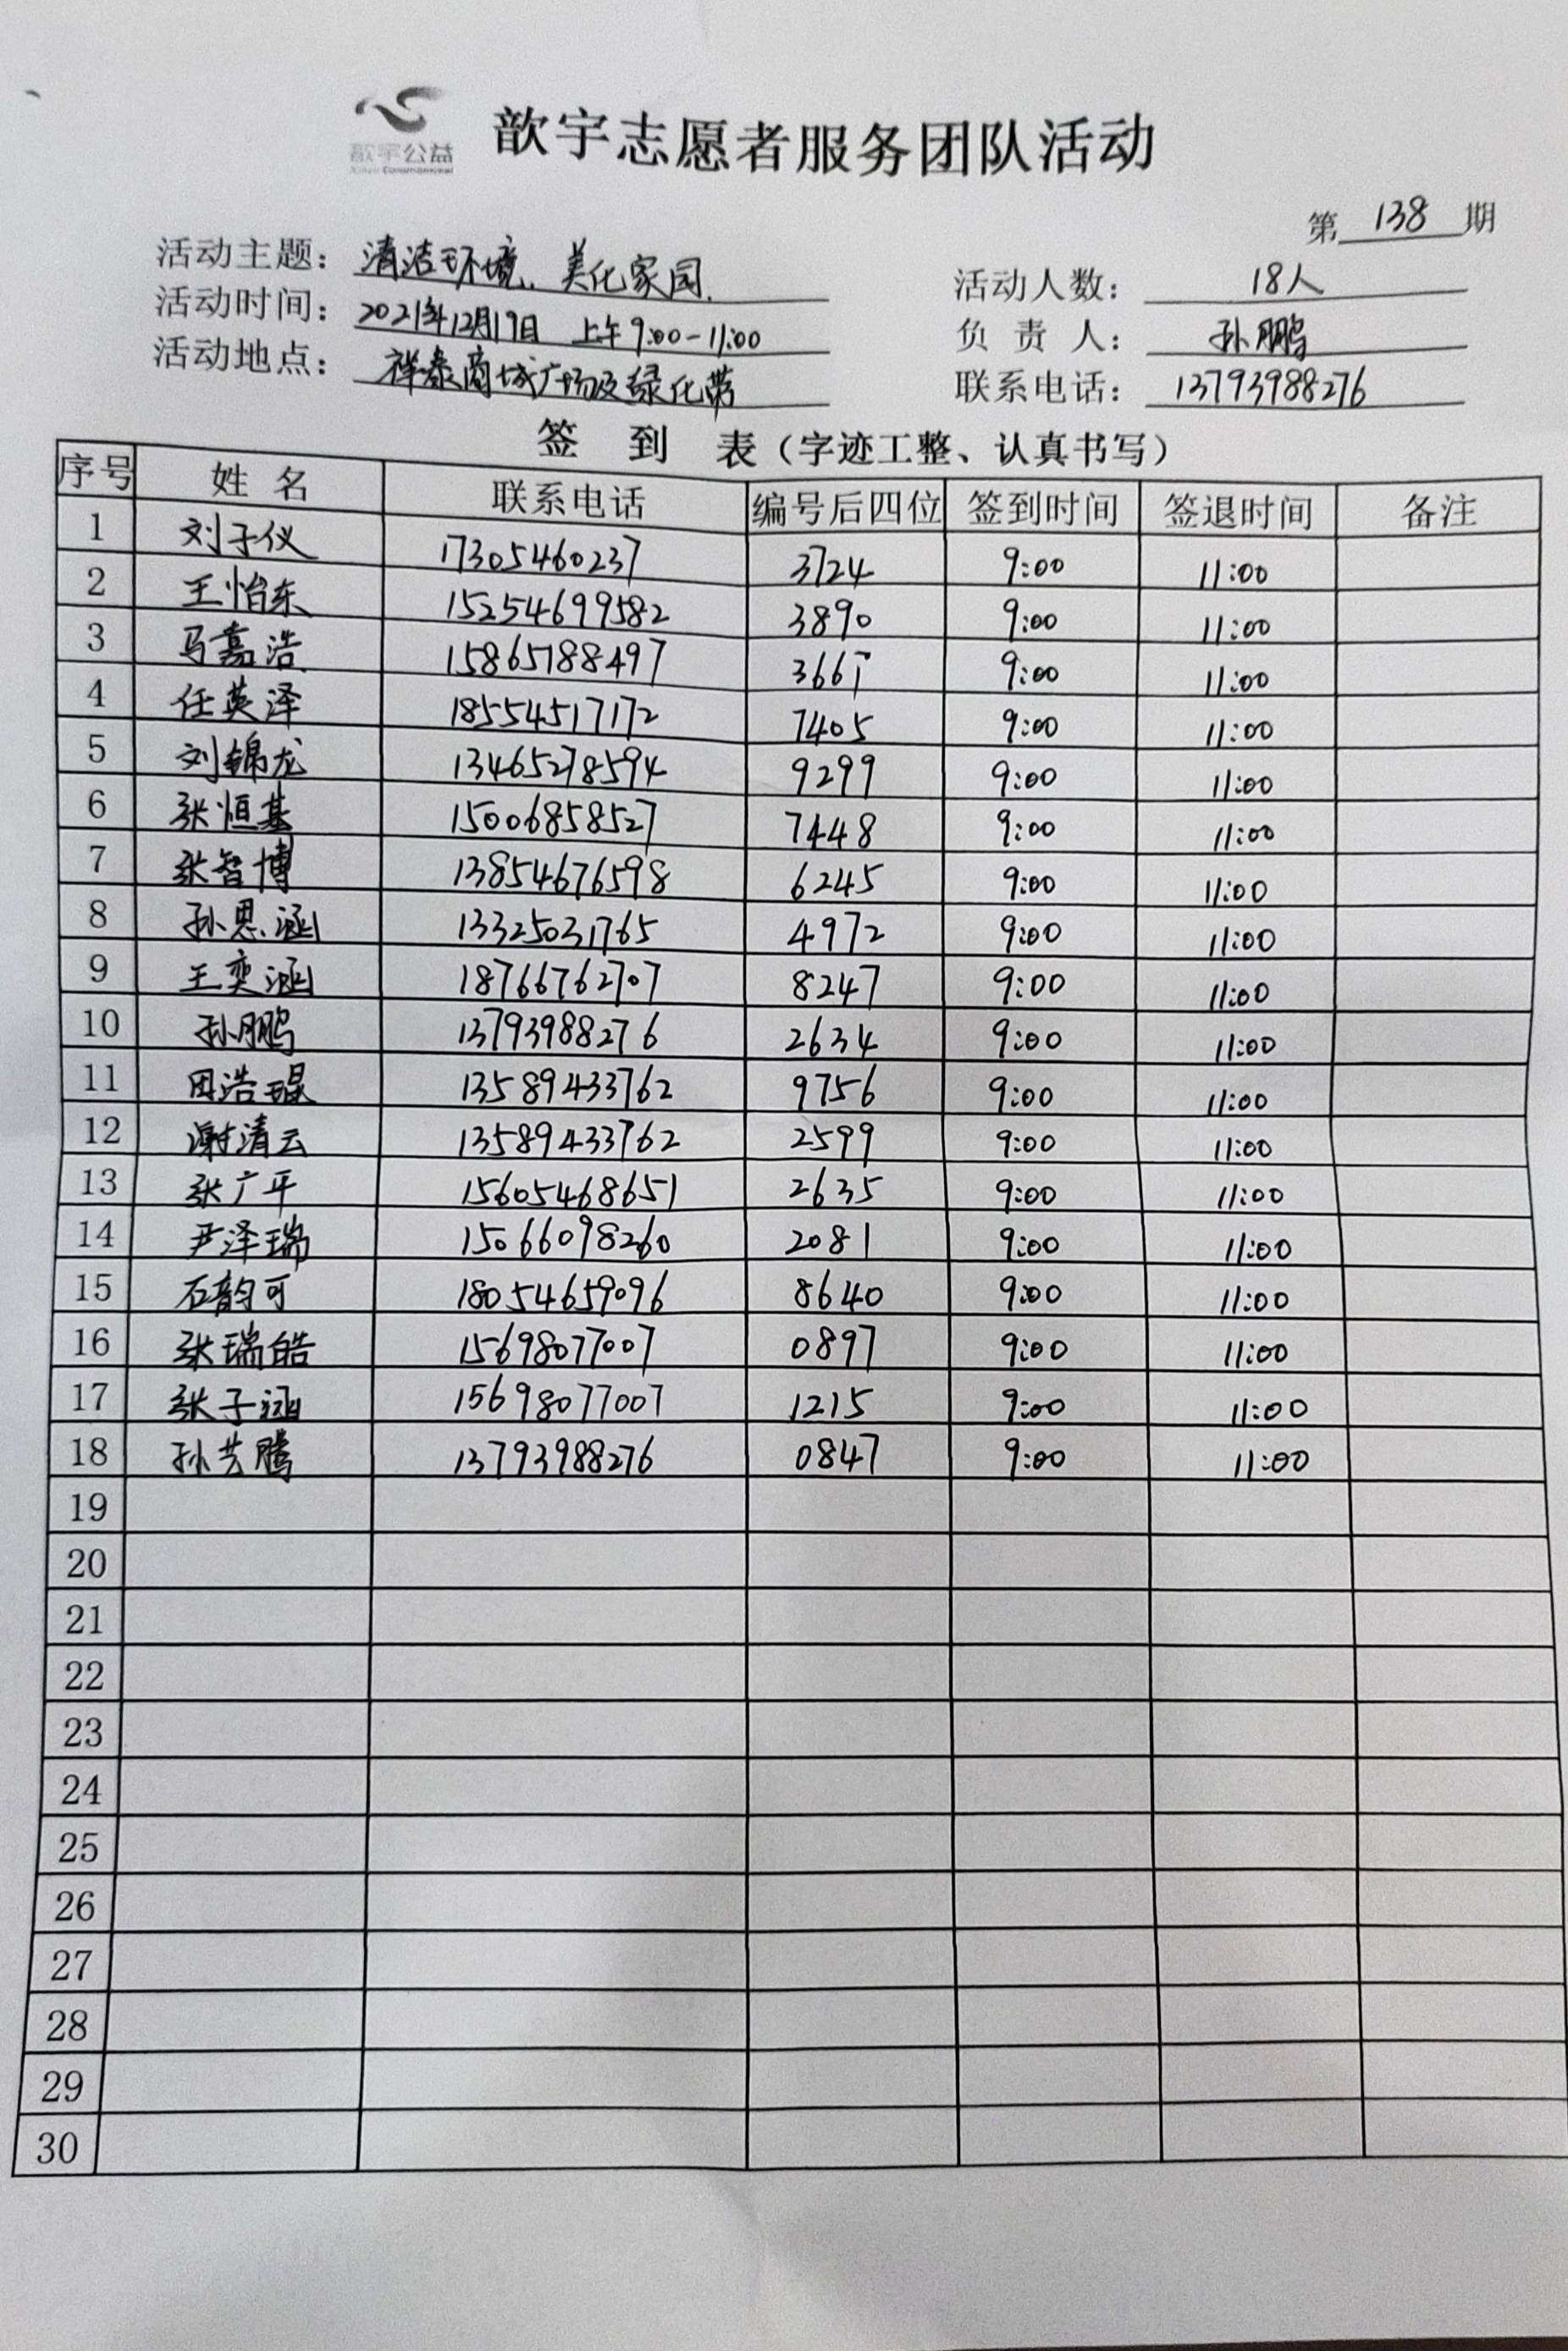 歆宇公益
歆宇志愿者服务团队活动
第 138 期
活动主题：清洁环境、美化家园. 活动人数：18人
活动时间：2021年12月19日 上午9:00-11:00 负责人：孙鹏
活动地点：祥泰商城广场及绿化带 联系电话：13793988276
签到表（字迹工整、认真书写）
序号 姓名 联系电话 编号后四位 签到时间 签退时间 备注
1 刘子仪 17305460237 3724 9:00 11:00
2 王怡东 15254699582 3890 9:00 11:00
3 马嘉浩 15865188497 366 9:00 11:00
4 任英泽 18554517172 7405 9:00 11:00
5 刘锦龙 13465278594 9299 9:00 11:00
6 张恒基 15006858527 7448 9:00 11:00
7 张智博 13854676598 6245 9:00 11:00
8 孙恩涵 13325031765 4972 9:00 11:00
9 王奕涵 18766762707 8247 9:00 11:00
10 孙鹏 13793988276 2634 9:00 11:00
11 田浩琨 13589433762 9756 9:00 11:00
12 谢清云 13589433762 2599 9:00 11:00
13 张广平 15605468651 2635 9:00 11:00
14 尹泽瑞 15066098260 2081 9:00 11:00
15 石韵可 18054659096 8640 9:00 11:00
16 张瑞皓 15698077007 0897 9:00 11:00
17 张子涵 15698077007 1215 9:00 11:00
18 孙艺腾 13793988276 0847 9:00 11:00
19
20
21
22
23
24
25
26
27
28
29
30